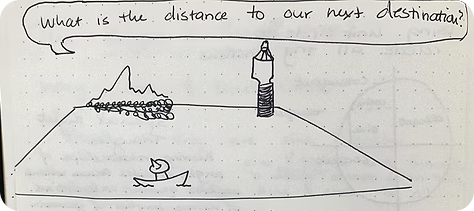 What is the distance to our next destination?